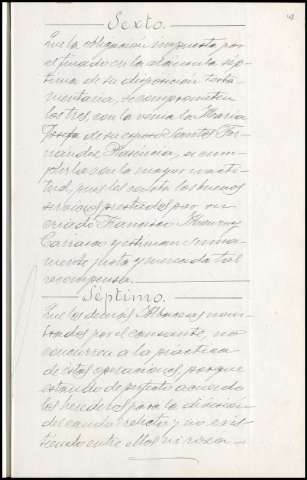 Sexto.
Que la obligación impuesta por
el finado en la cláusula sép-
tima de su disposición testa-
mentaria, se comprometen
los tres, con la venia la María
Josefa de su esposo Santos Fer-
nandez Plasencia, a cum-
plirla con la mayor exacti-
tud, pues les consta los buenos
servicios prestados por su
criado Francisco
Carrasco y estiman suma-
mente justa y merecida tal
recompensa.
Séptimo.
Que los demás Albaceas nom-
brados por el causante, no
concurren a la práctica
de estas operaciones, porque
estando de perfecto acuerdo
los herederos para la división
del caudal relicto y no exis-
tiendo entre ellos ni